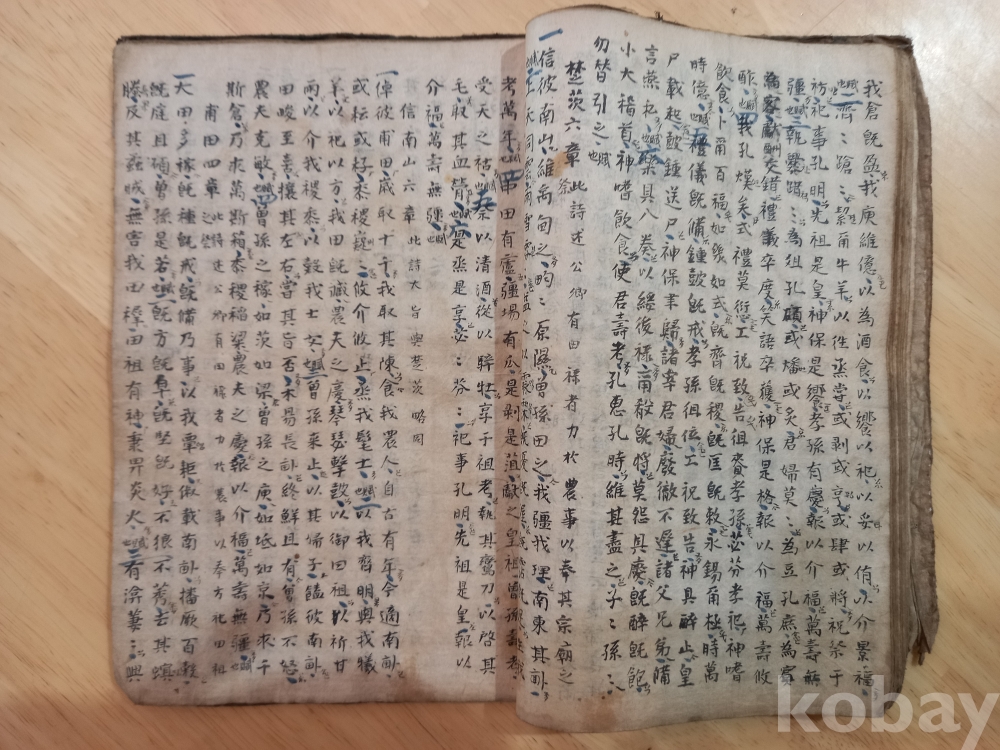 我倉旣盈我庾維億以為酒食以饗以祀以妥以侑以介景福
濟〻蹌〻絜爾牛羊以徃烝嘗或剥或亨或肆或將祝祭于
祊祀事孔明先祖是皇神保是饗孝孫有慶報以介福萬壽無
疆執爨踖〻為俎孔碩或燔或炙君婦莫〻為豆孔庶為賓
為客獻酬交錯禮儀卒度笑語卒獲神保是格報以介福萬壽攸
酢我孔熯矣式禮莫愆工祝致告徂賚孝孫苾芬孝祀神嗜
飮食卜爾百福如幾如式旣齊旣稷旣匡旣敕永錫爾極時萬
時億禮儀旣備鍾皷旣戒孝孫徂位工祝致告神具醉止皇
尸載起皷鍾送尸神保聿歸諸宰君婦廢徹不遲諸父兄弟備
言燕私樂具入奏以綏後祿爾殽旣將莫怨具慶旣醉旣飽
小大稽首神嗜飮食使君壽考孔惠孔時維其盡之子〻孫〻
勿替引之
楚茨六章 此詩述公卿有田祿者力於農事以奉其宗廟之祭
信彼南山維禹甸之畇〻原隰曾孫田之我疆我理南東其畝
考萬年中田有廬疆場有瓜是剥是菹獻之皇祖曾孫壽考
受天之祜祭以清酒從以騂牡享于祖考執其鸞刀以啓其
毛取其血膋是烝是享苾〻芬〻祀事孔明先祖是皇報以
介福萬壽無疆
信南山六章 此詩大旨與楚茨略同
倬彼甫田歲取十千我取其陳食我農人自古有年今適南畝
或耘或耔黍稷薿〻攸介攸止烝我髦士以我齊明與我犧
羊以社以方我田旣臧農夫之慶琴瑟擊皷以御田祖以祈甘
雨以介我稷黍以穀我士女曾孫來止以其婦子饁彼南畝
田畯至喜攘其左右嘗其旨否禾易長畝終善且有曾孫不怒
農夫克敏曾孫之稼如茨如梁曾孫之庾如坻如京乃求千
斯倉乃求萬斯箱黍稷稻粱農夫之慶報以介福萬壽無疆
甫田四章 此詩述公卿有田祿者力於農事以奉方社田祖
大田多稼旣種旣戒旣備乃事以我覃耜俶載南畝播厥百穀
旣庭且碩曾孫是若旣方旣皁旣堅旣好不稂不莠去其螟
螣及其蟊賊無害我田穉田祖有神秉畀炎火有渰萋〻興
kobay